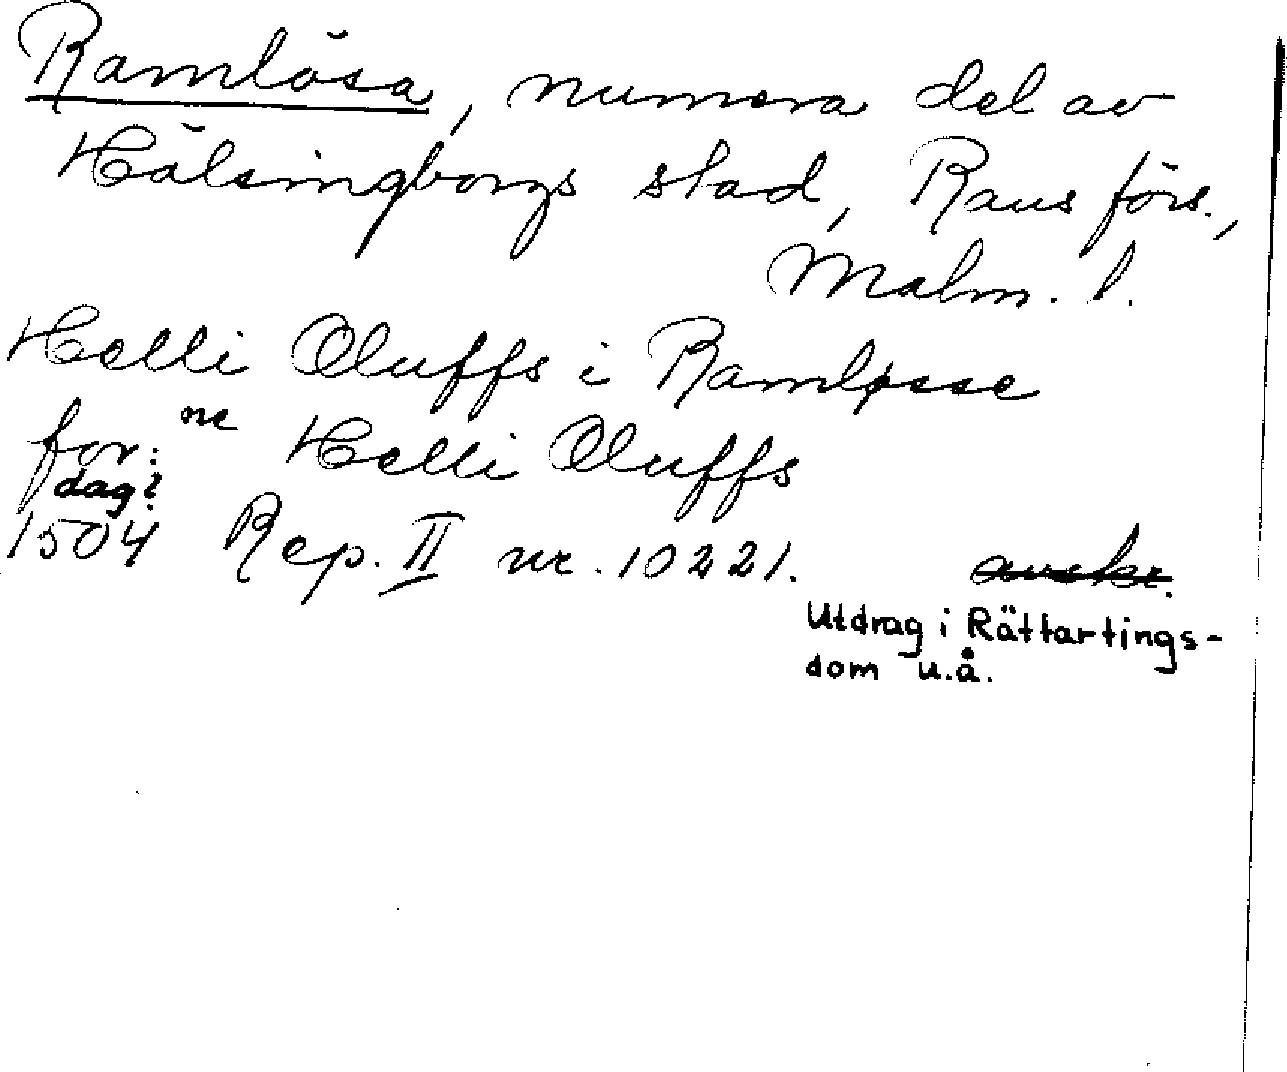 Ramlösa, numera del av
Hälsingborgs stad, Raus förs.,
Malm. l.
Helli Oluffs i Ramløsse
for:ne Helli Oluffs
dag?
1504 Rep. II nr. 10221. avskr.
Utdrag i Rättartings-
dom u.å.